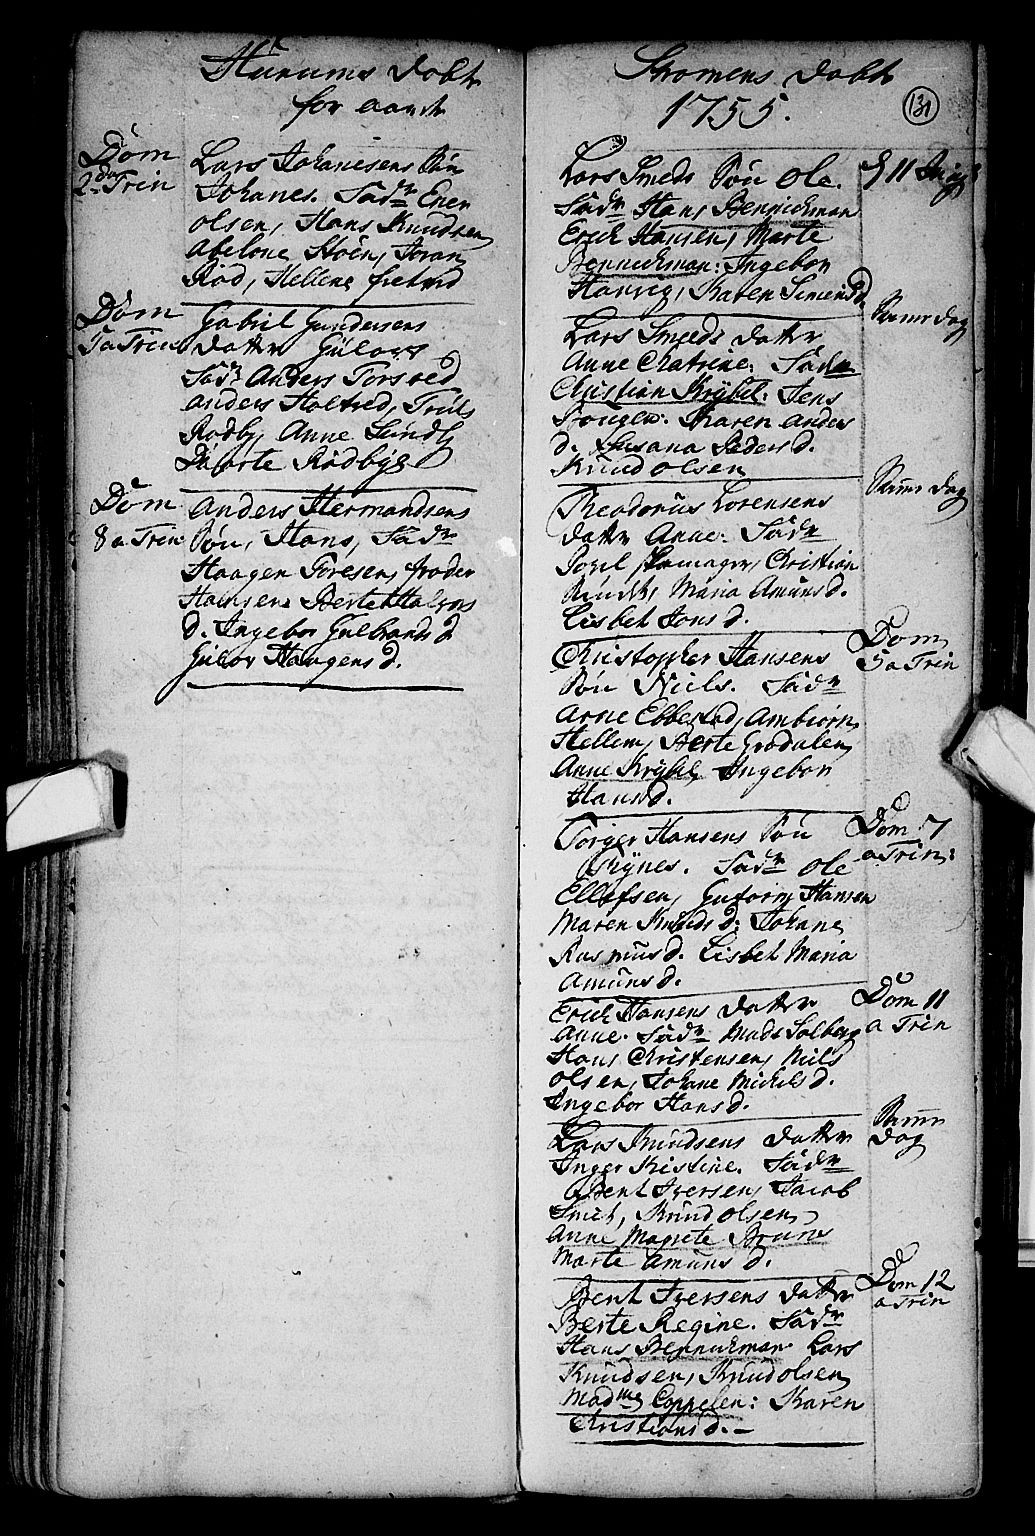 Hurums Døbte
for aaret
Dom
2da Trin
Lars Johanesens Søn
Johanes. Fadr Ener
olsen, Hans Knudsen,
Abelone Støen, Joran
Rød, Hellene
Dom
5 a Trin
Gabril Gundersens
datter Gulov
Fadr Anders Torsrød
anders Holtrød, Truls
Rødby, Anne Sundby
Dorte Rødbye
Dom
8 a Trin
Anders Hermandsens
Søn, Hans, Fadr
Haagen Toresen,
Hansen. Berte Halvors
d. Ingebor Gulbrands d
Gulov Haagens d.
Stromens Døbte
1755.
131
Lars Smeds Søn Ole.
Fadr Hans Bennickman
Erich Hansen, Marte
Bennickman: Ingebor
Hansig, Karen Simens d
Lars Smeds datter
Anne Chatrine: Fadr
Christian Krybel: Jens
Karen Anders
d. Susana Peders d.
Knud olsen
Samme dag
Theodorus Lorensens
datter Anne: Fadr
Christian
Maria Amunds d.
Lisbet Jons d.
Samme dag
Christopher Hansens
Søn Niels. Fadr
Arne Ebbestad, Ambiørn
Hellem, Berte Grodalen,
Anne Krybel, Ingebor
Hans d.
Dom
5 a Trin
Torger Hansens Søn
Rynes. Fadr Ole
Ellefsen, Gutorm Hansen
Maren Knuds d: Johane
Rasmus d. Lisbet Maria
Amuns d.
Dom 7
a Trin:
Erich Hansens datter
Anne. Fadr Mads Solberg
Hans Christensen, Niels
olsen, Johane Michels d.
Ingebor Hans d.
Dom 11
a Trin
Lars Knudsens datter
Inger Kristine. Fadr
Bent Iversen, Jacob
Smed, Knud olsen,
Anne Magrete Bruns
Marte Amuns d.
Samme
dag
Bent Iversens datter
Berte Regine. Fadr
Hans Bennickman Lars
Knudsen, Knud olsen,
Madme Coppelen: Karen
Christians d. –
Dom 12
a Trin